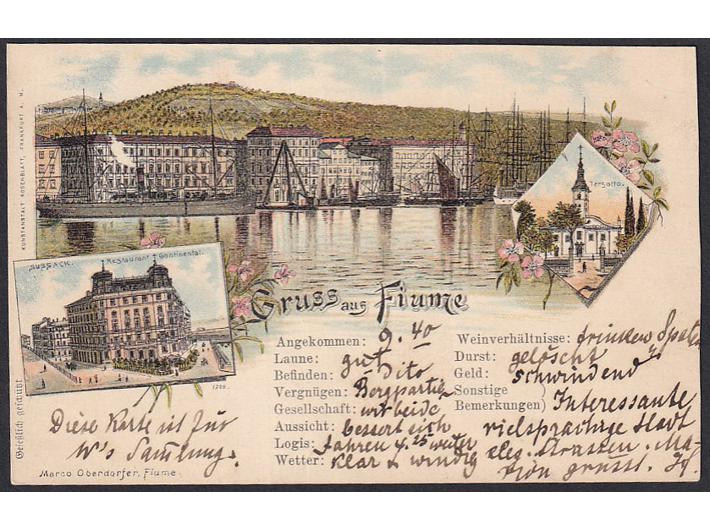 KUNSTANSTALT ROSENBLATT, FRANKFURT A. M.
Tersatto.
SUSSACK.
Restaurant Continental.
1266.
Gruss aus Fiume
Angekommen: 9.40
Laune: gut
Befinden: Dito
Vergnügen: Bergpartie
Gesellschaft: wir beide
Aussicht: bessert sich
Logis: fahren 4.25 weiter
Wetter: klar & windig
Weinverhältnisse: trinken
Durst: gelöscht
Geld: schwindend
Sonstige
Bemerkungen) Interessante
vielsprachige Stadt
eleg. Strassen. Ma-
Gesetzlich geschützt
Diese Karte ist für
W's Samlung.
Marco Oberdorfer, Fiume.